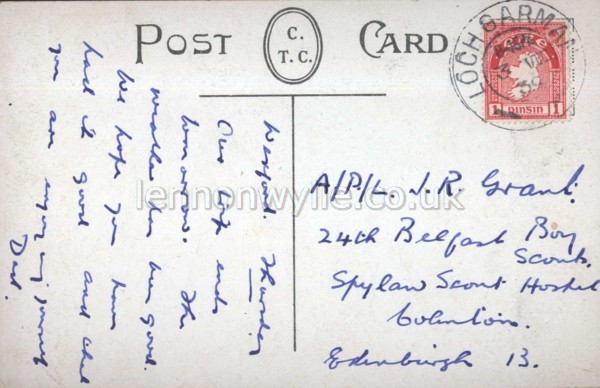 POST C.T.C. CARD
LOCH GARMAN
1 PINSIN 1
Wexford. Thursday
Our trip ends
tomorrow. The
weather has been good.
We hope you have
had it good and that
you are enjoying yourself
Dad.
A/P/L J.R. Grant.
24th Belfast Boy
Scouts.
Spylaw Scout Hostel
Colinton.
Edinburgh 13.
lennonwylie.co.uk